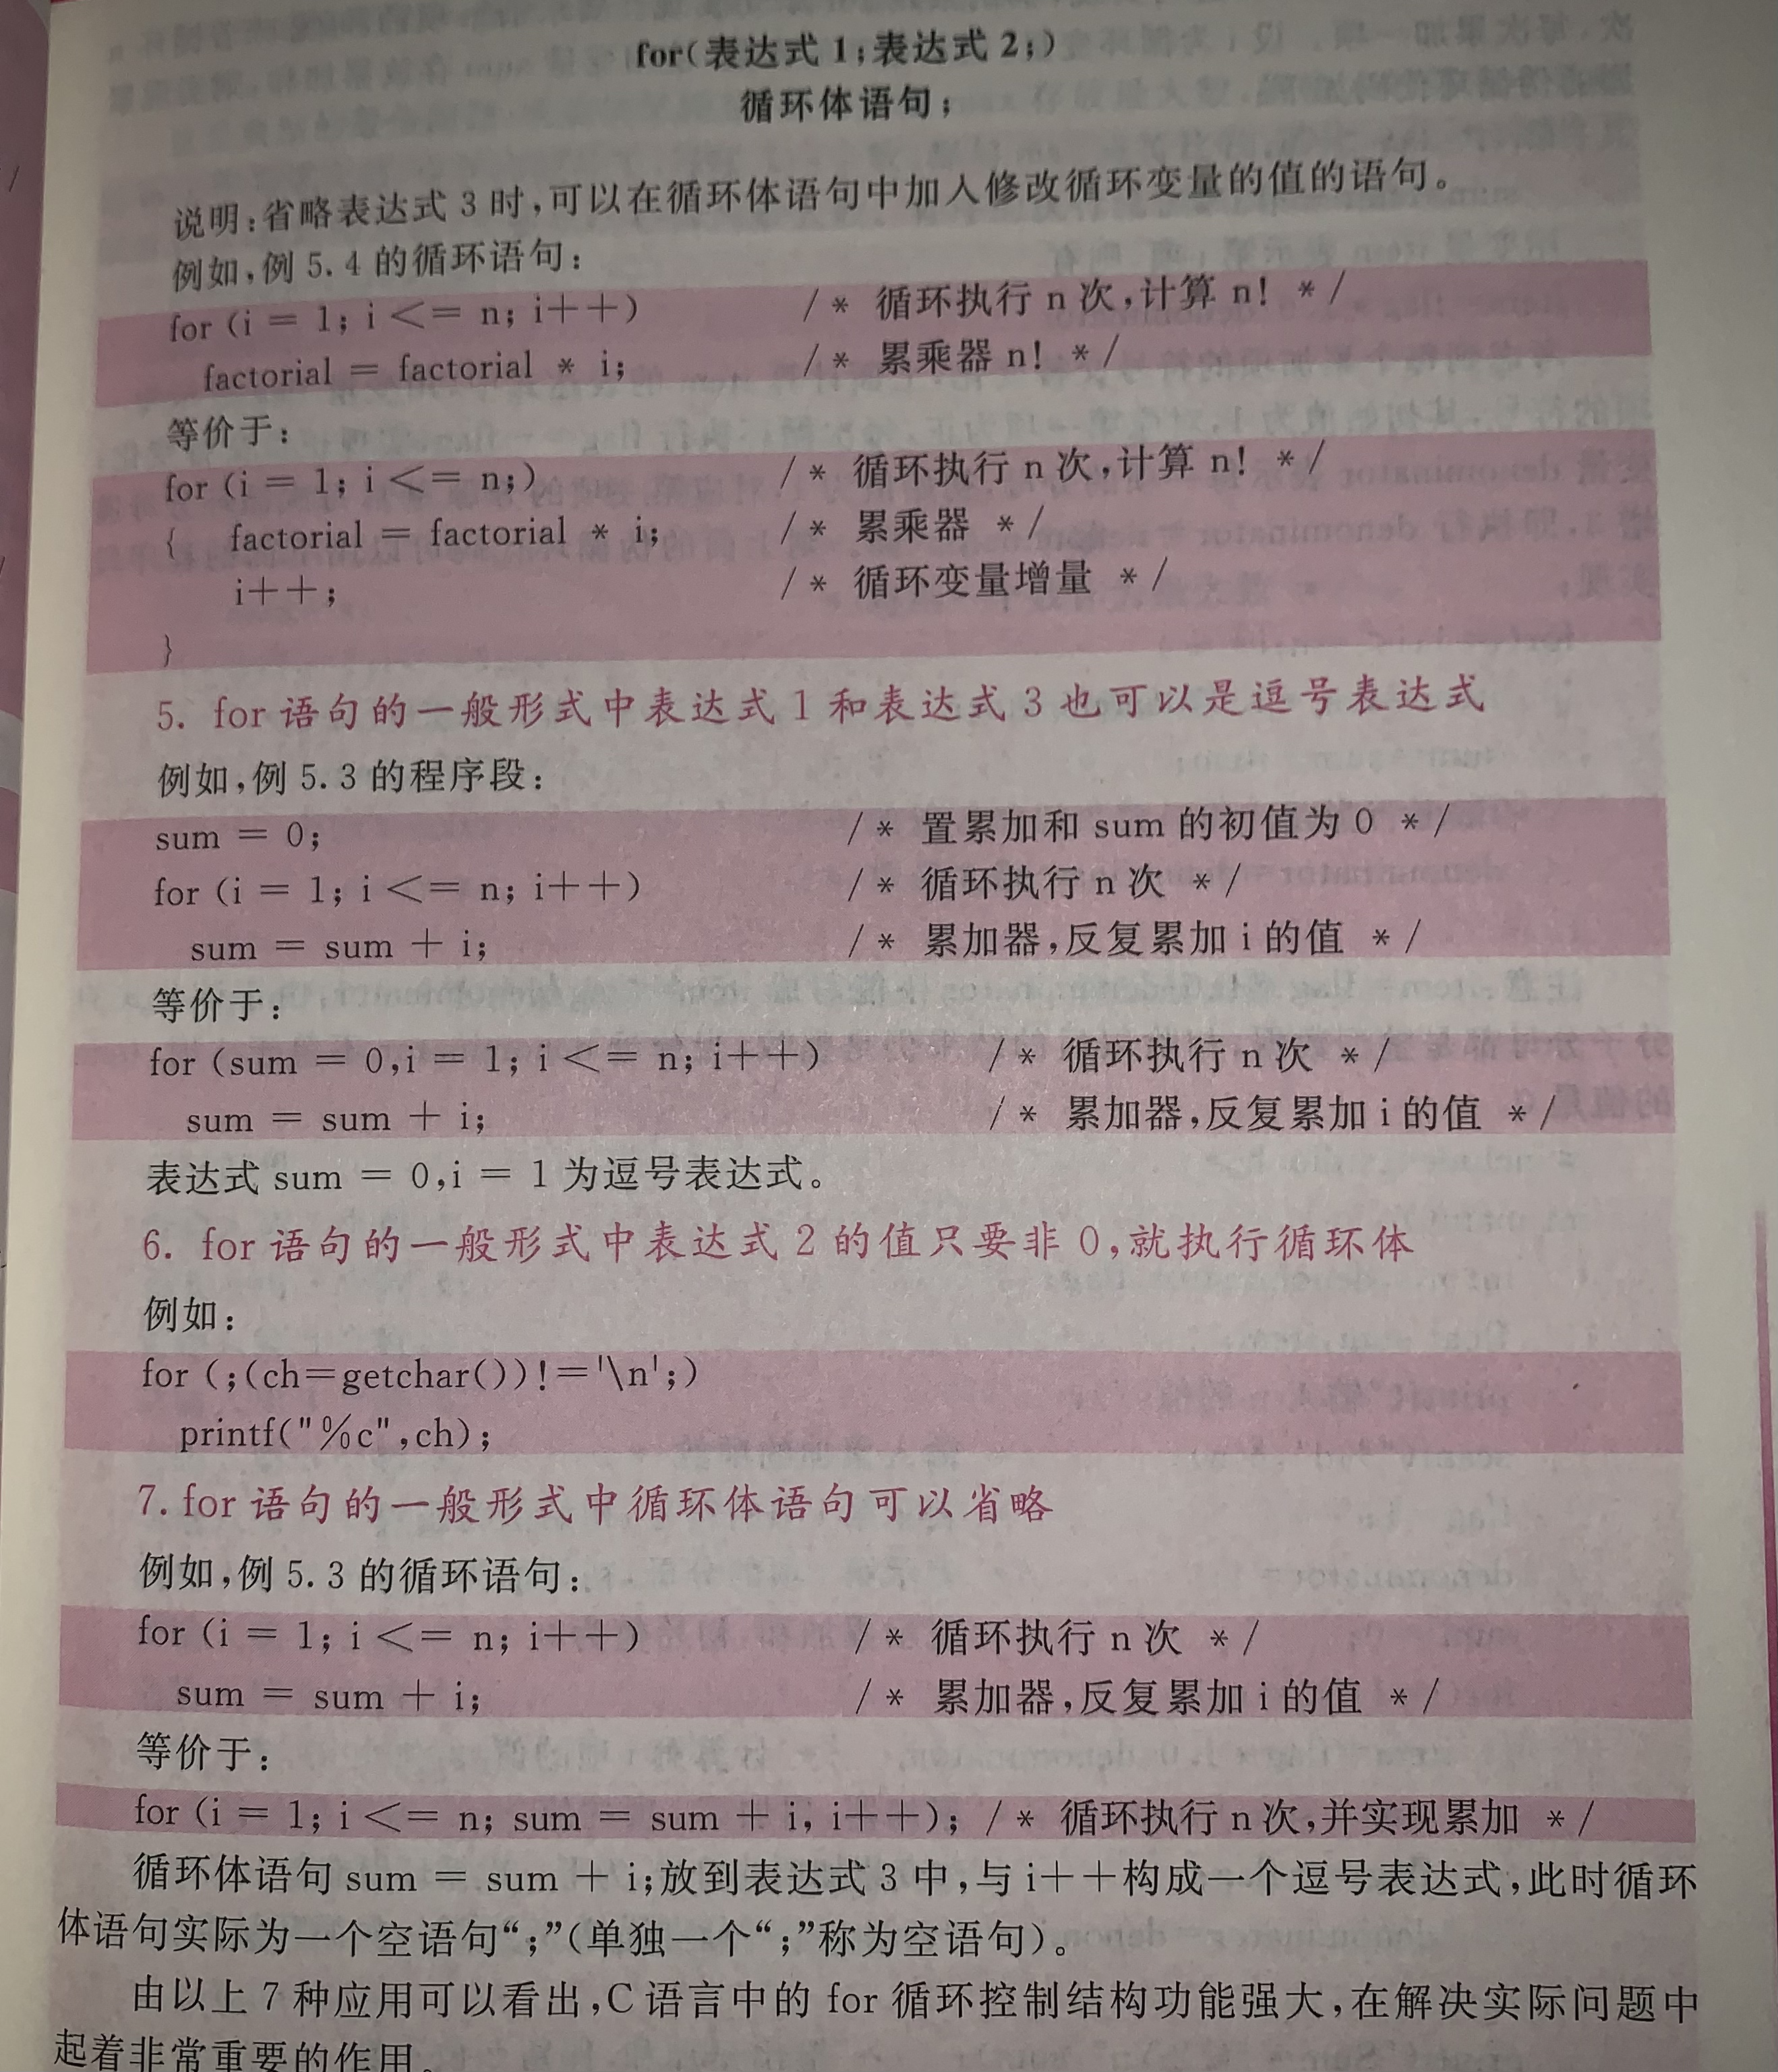 for(表达式 1;表达式 2;)
循环体语句;
说明:省略表达式 3 时,可以在循环体语句中加入修改循环变量的值的语句。
例如,例 5.4 的循环语句:
for (i = 1; i <= n; i++) /* 循环执行 n 次,计算 n! */
factorial = factorial * i; /* 累乘器 n! */
等价于:
for (i = 1; i <= n;) /* 循环执行 n 次,计算 n! */
{ factorial = factorial * i; /* 累乘器 */
i++; /* 循环变量增量 */
}
5. for 语句的一般形式中表达式 1 和表达式 3 也可以是逗号表达式
例如,例 5.3 的程序段:
sum = 0; /* 置累加和 sum 的初值为 0 */
for (i = 1; i <= n; i++) /* 循环执行 n 次 */
sum = sum + i; /* 累加器,反复累加 i 的值 */
等价于:
for (sum = 0,i = 1; i <= n; i++) /* 循环执行 n 次 */
sum = sum + i; /* 累加器,反复累加 i 的值 */
表达式 sum = 0,i = 1 为逗号表达式。
6. for 语句的一般形式中表达式 2 的值只要非 0,就执行循环体
例如:
for (;(ch=getchar())!='\n';)
printf("%c",ch);
7. for 语句的一般形式中循环体语句可以省略
例如,例 5.3 的循环语句:
for (i = 1; i <= n; i++) /* 循环执行 n 次 */
sum = sum + i; /* 累加器,反复累加 i 的值 */
等价于:
for (i = 1; i <= n; sum = sum + i, i++); /* 循环执行 n 次,并实现累加 */
循环体语句 sum = sum + i;放到表达式 3 中,与 i++构成一个逗号表达式,此时循环
体语句实际为一个空语句“;”(单独一个“;”称为空语句)。
由以上 7 种应用可以看出,C 语言中的 for 循环控制结构功能强大,在解决实际问题中
起着非常重要的作用。